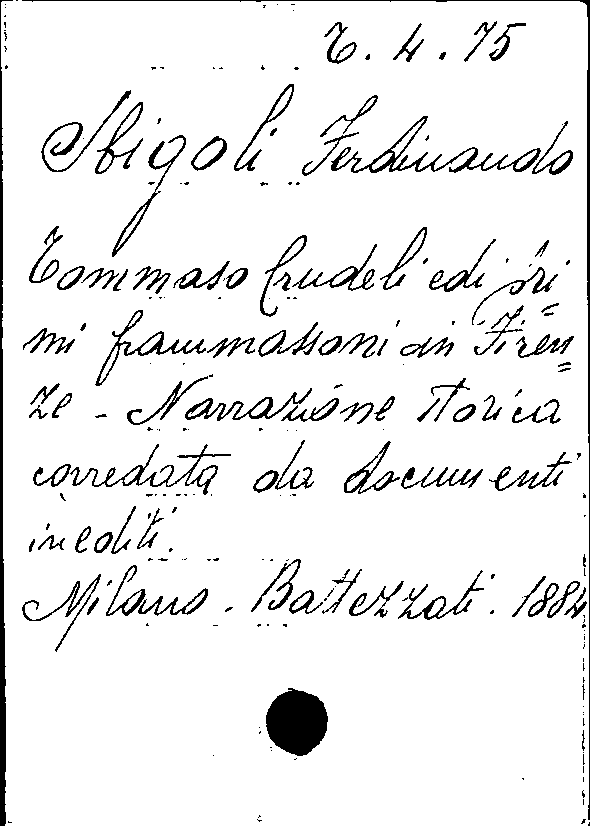 C. 4. 75
Sbigoli Ferdinando
Tommaso Crudeli e di pri=
mi frammassoni in Firen=
ze - Narrazione storica
corredata da documenti
inediti.
Milano - Battezzati. 1884